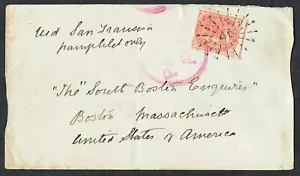 via San Francisco
pamphlet only
"The" South Boston Enquirer
Boston Massachusetts
United States of America